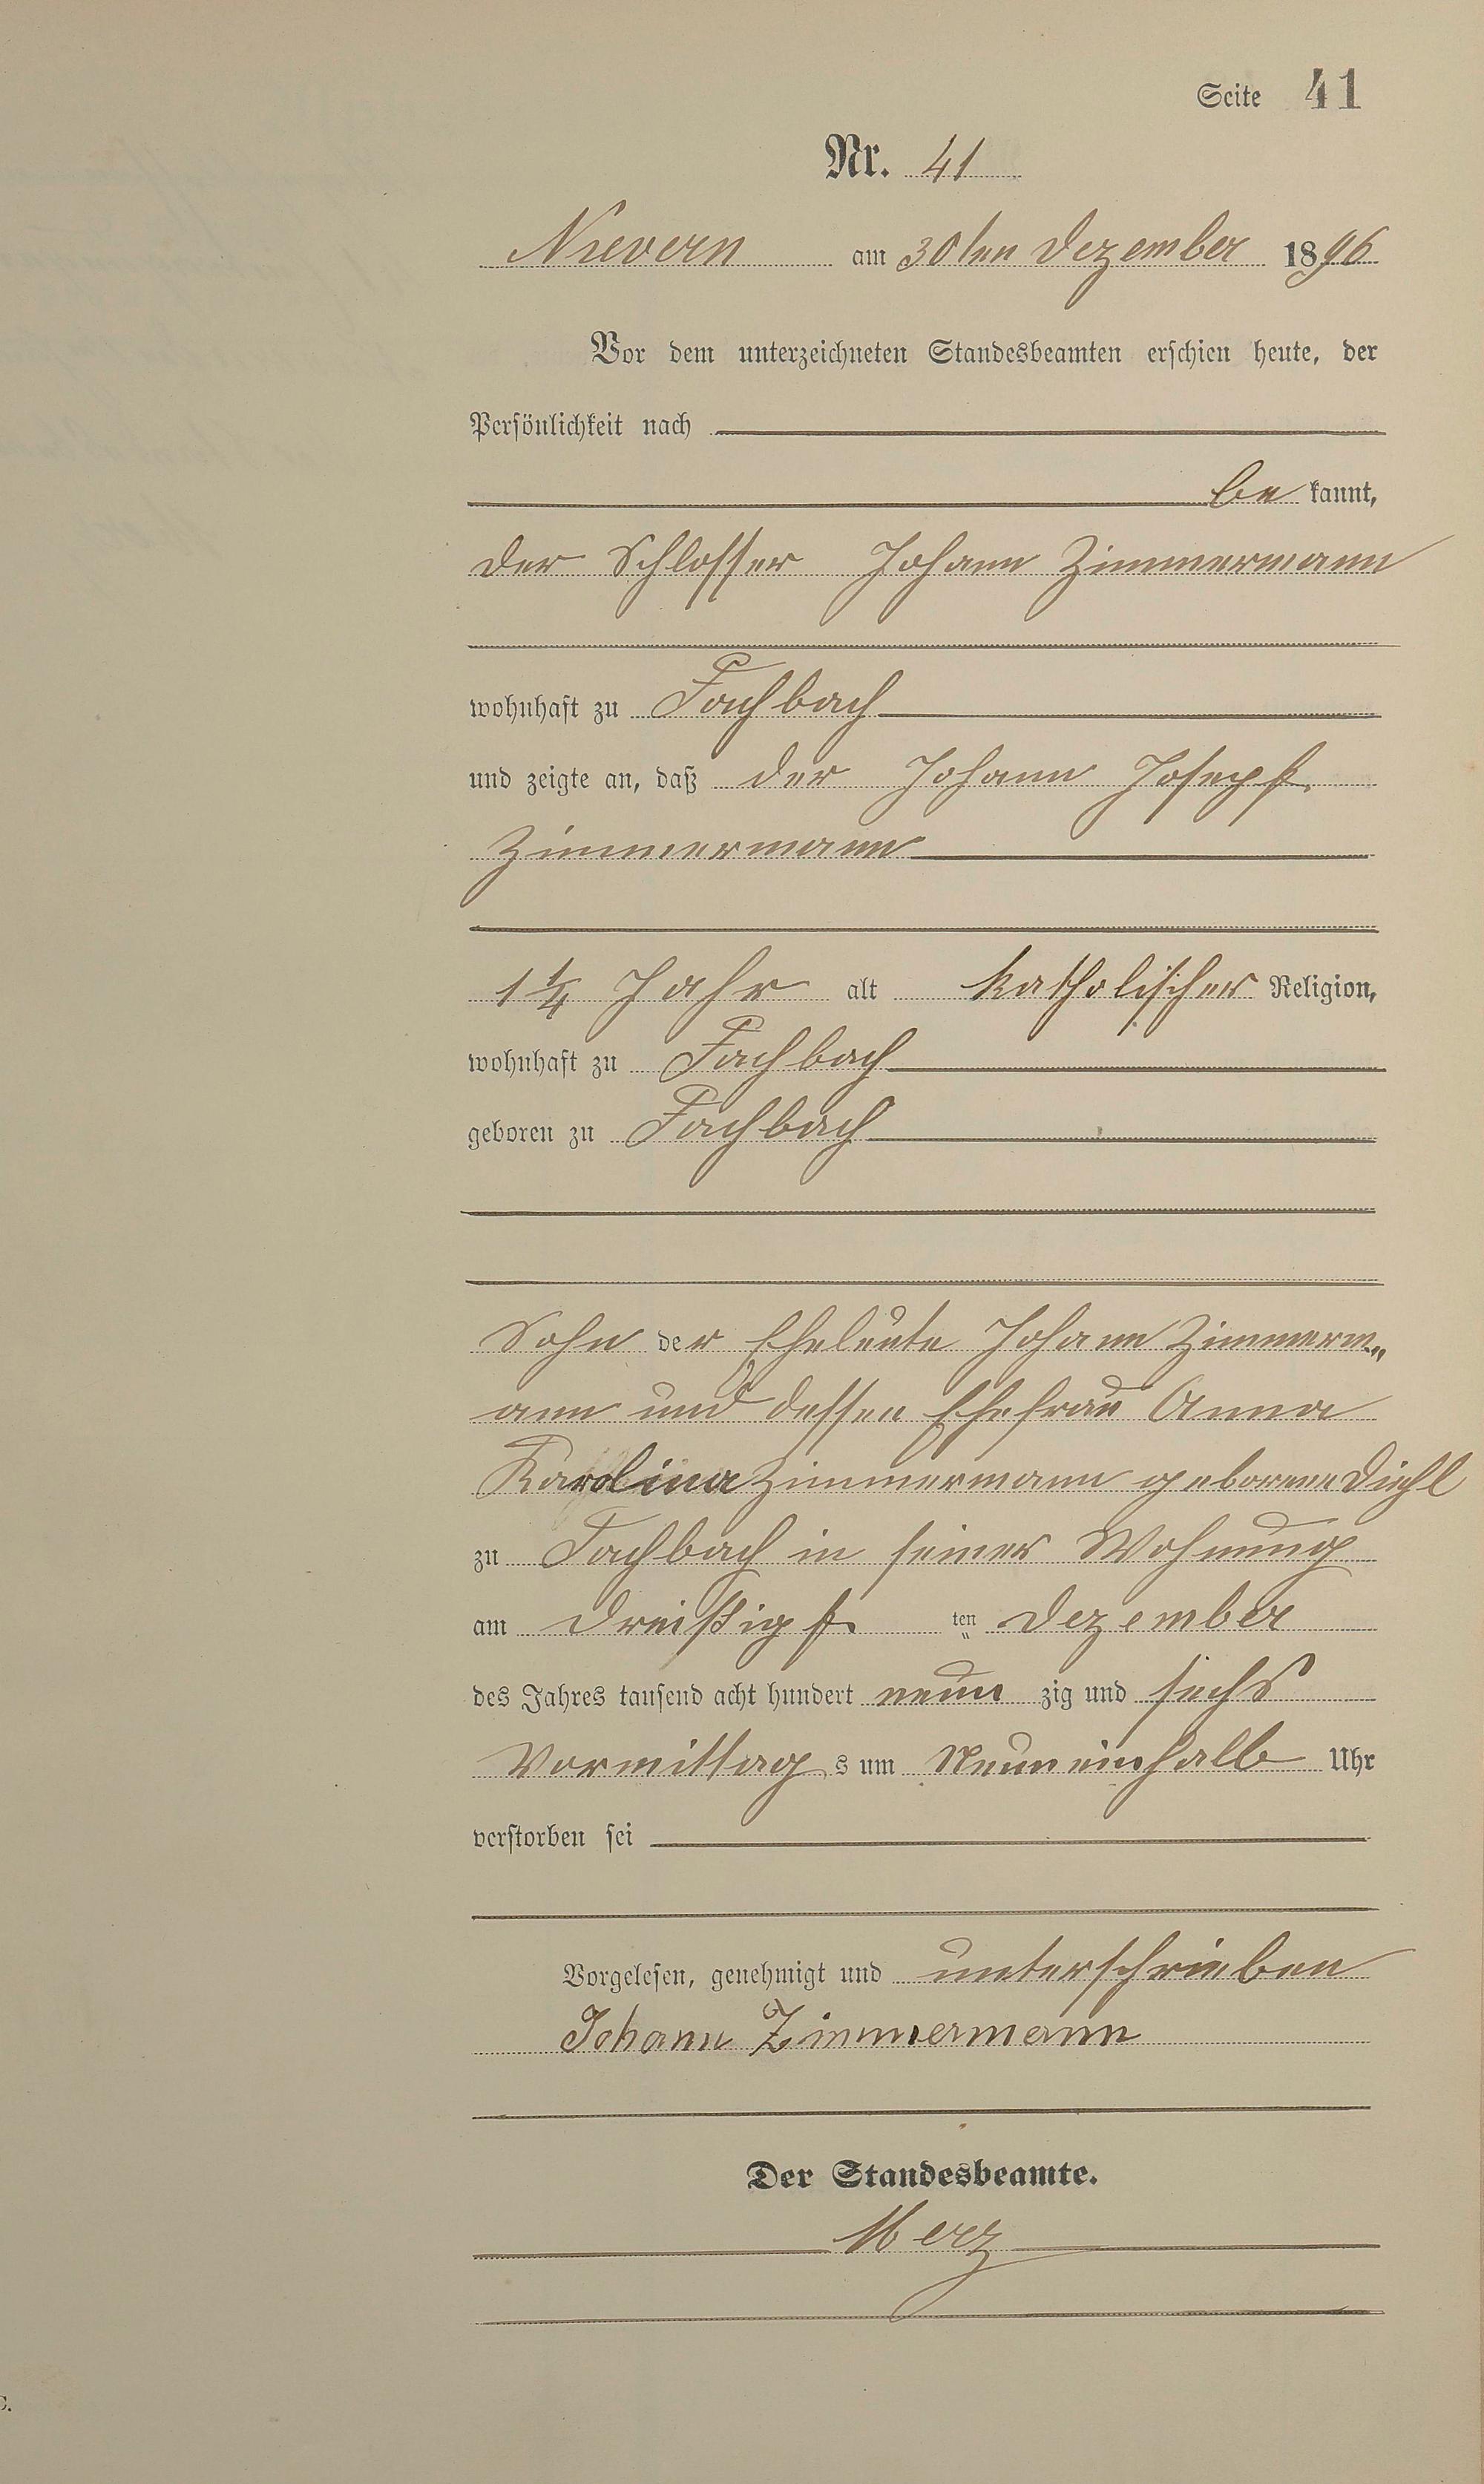 Seite 41
Nr. 41
Nievern am 30ten Dezember 1896
Vor dem unterzeichneten Standesbeamten erschien heute, der
Persönlichkeit nach
be kannt,
der Schlosser Johann Zimmermann
wohnhaft zu Fachbach
und zeigte an, daß der Johann Joseph
Zimmermann
1 1/4 Jahr alt katholischer Religion,
wohnhaft zu Fachbach
geboren zu Fachbach
Sohn der Eheleute Johann Zimmerm„
ann und dessen Ehefrau Anna
Karolina Zimmermann geborene Diehl
zu Fachbach in seiner Wohnung
am dreißigs ten Dezember
des Jahres tausend acht hundert neun zig und sechs
Vormittag s um Neuneinhalb Uhr
verstorben sei
Vorgelesen, genehmigt und unterschrieben
Johann Zimmermann
Der Standesbeamte.
Merz